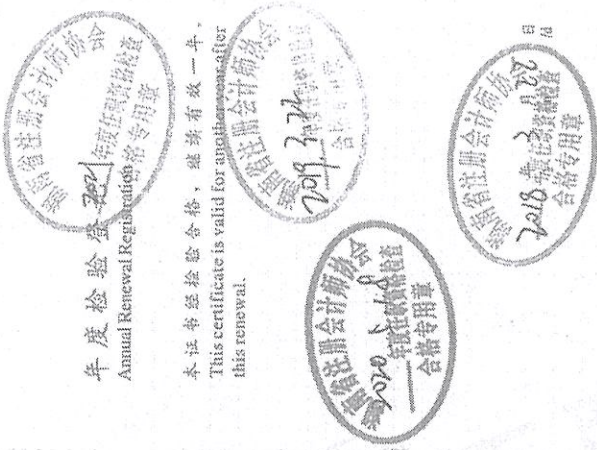 年度检验登记
Annual Renewal Registration
本证书经检验合格，继续有效一年。
This certificate is valid for another year after
this renewal.
湖南省注册会计师协会
2021年度任职资格检查
合格专用章
湖南省注册会计师协会
2019
年度任职资格检查
合格专用章
湖南省注册会计师协会
2020
年度任职资格检查
合格专用章
湖南省注册会计师协会
2018年度任职资格检查
合格专用章
日